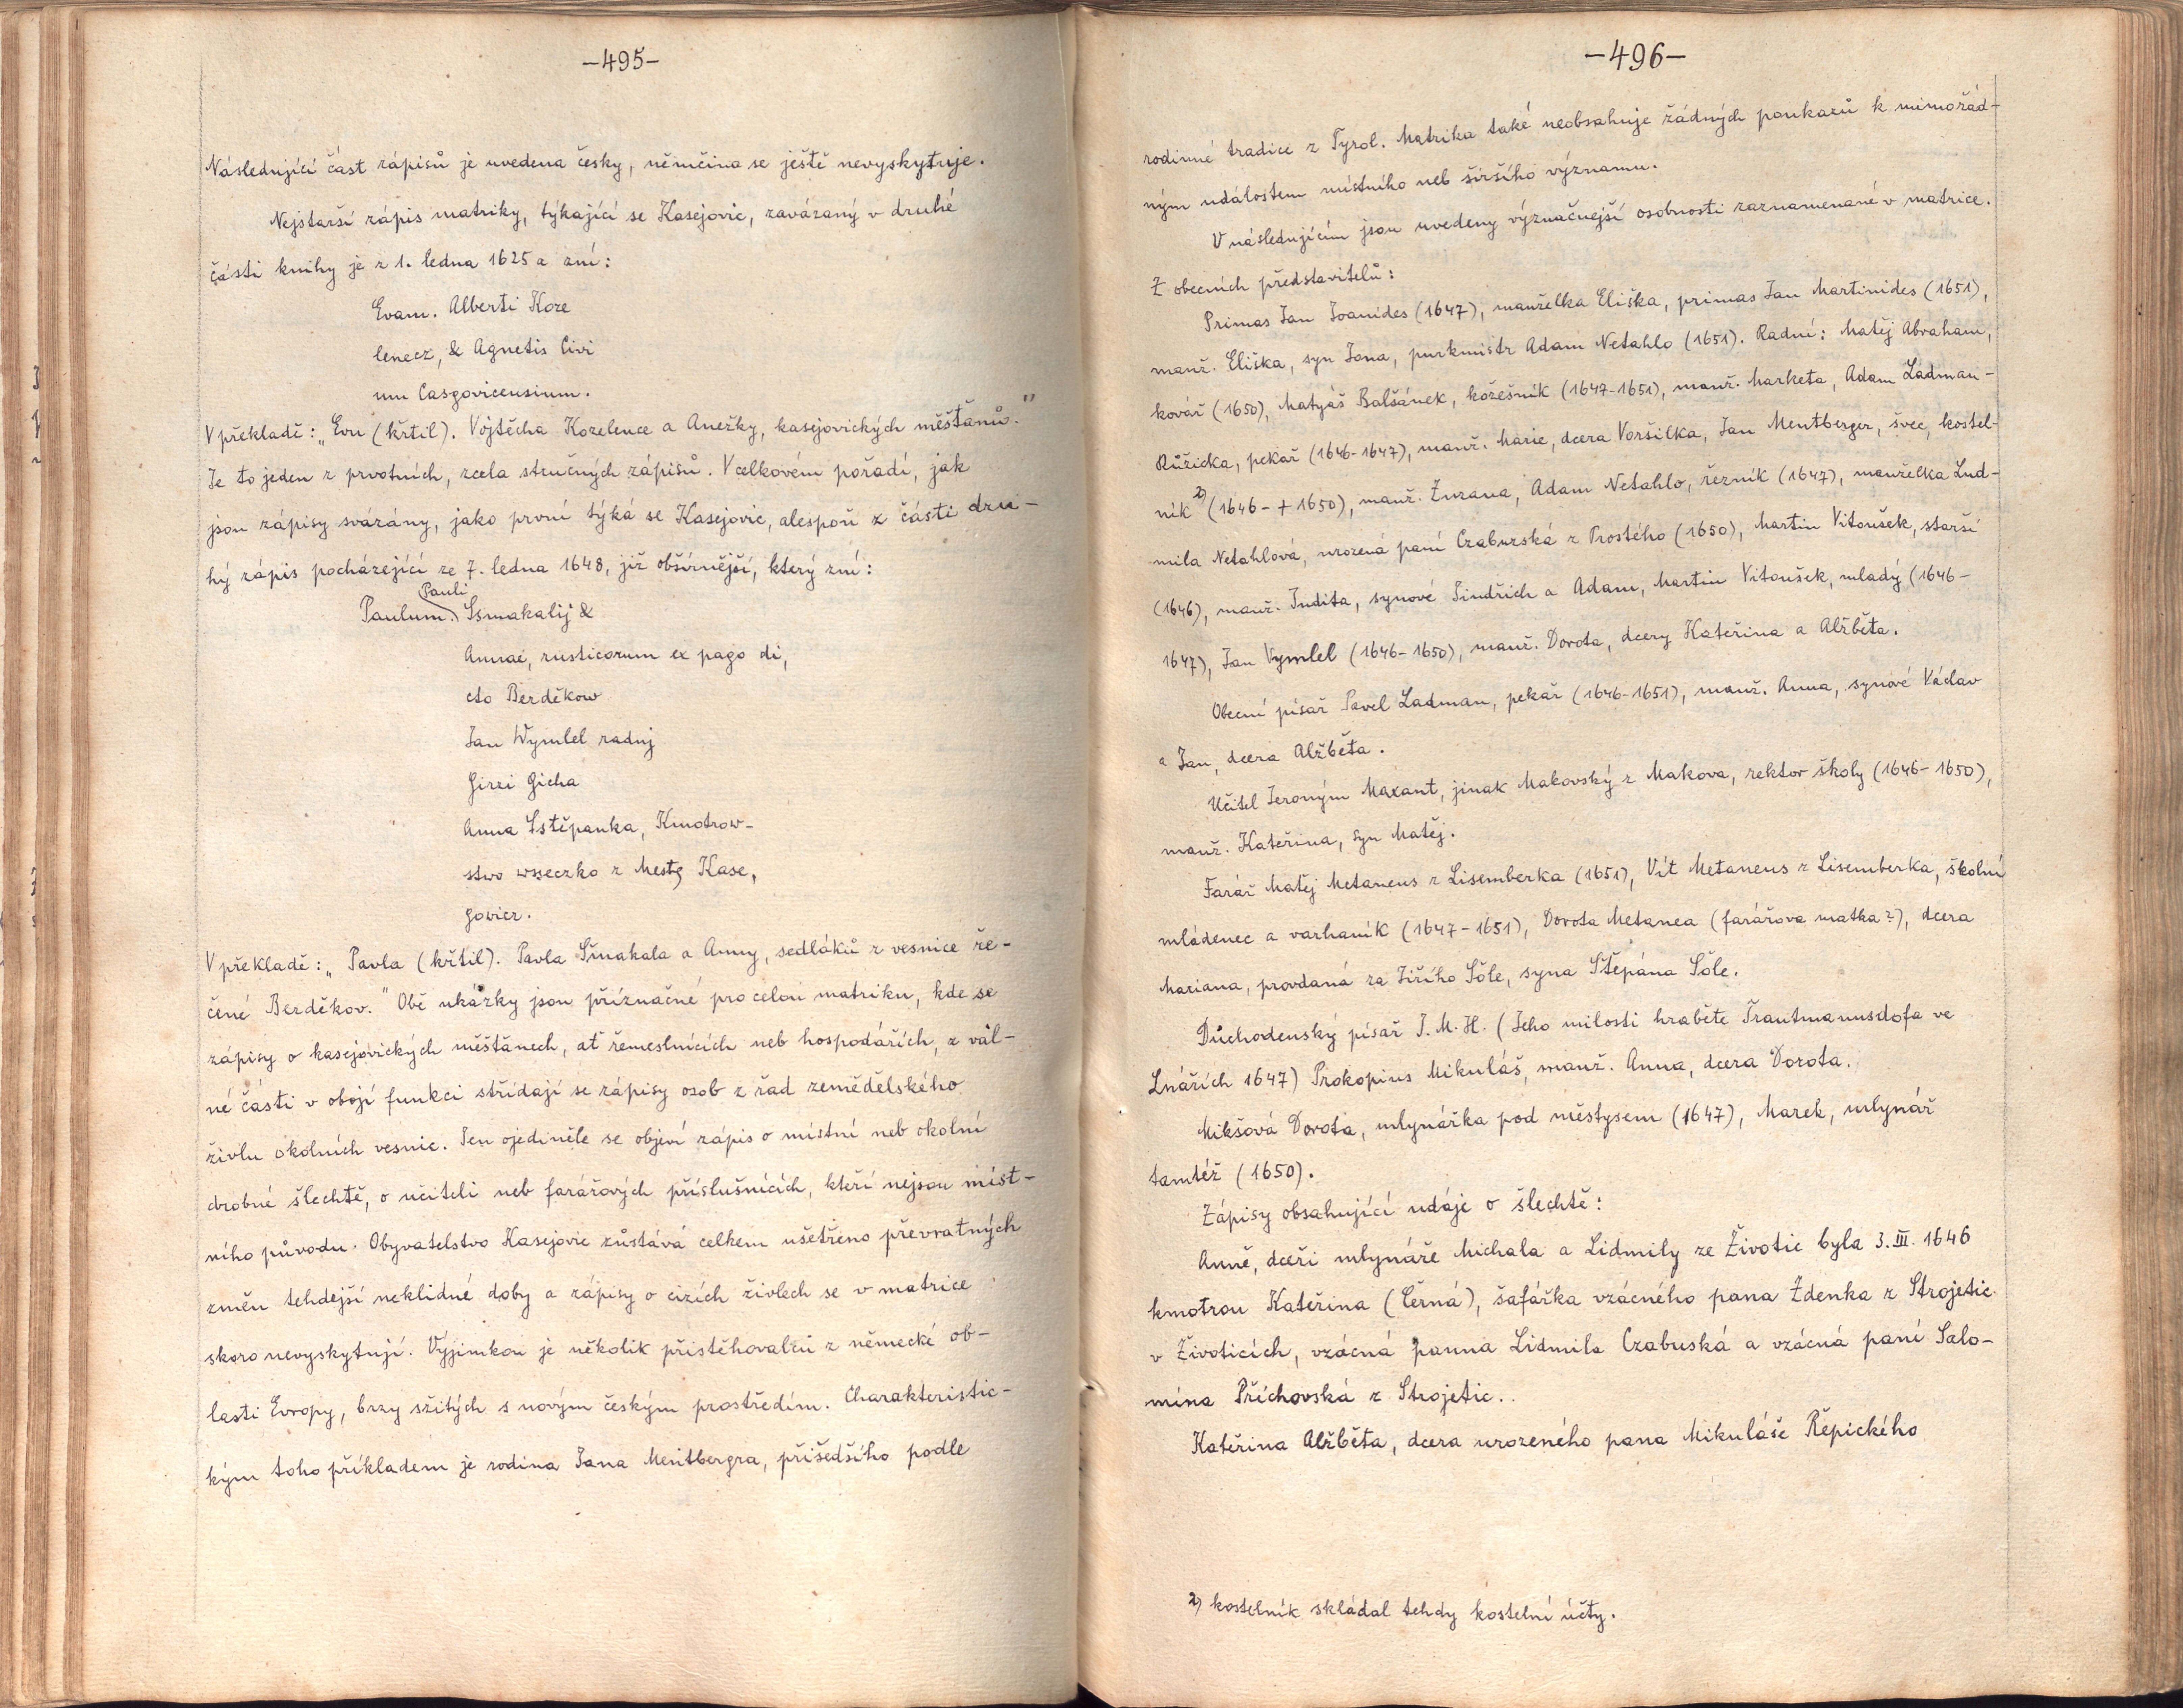 -495-
Následující část zápisů je uvedena česky, němčina se ještě nevyskytuje.
Nejstarší zápis matriky, týkající se Kasejovic, zavázaný v druhé
části knihy je z 1. ledna 1625 a zní:
Evam. Alberti Koze
lenecz, & Agnetis Civi
um Casgovicensium.
V překladě: „Evu (křtil). Vojtěcha Kozelence a Anežky, kasejovických měšťanů."
Je to jeden z prvotních, zcela stručných zápisů. V celkovém pořadí, jak
jsou zápisy svázány, jako první týká se Kasejovic, alespoň z části dru-
hý zápis pocházející ze 7. ledna 1648, již obšírnější, který zní:
Pauli
Paulum. Ssmakalij &
Annae, rusticorum ex pago di,
cto Berděkow
Jan Wymlel radnj
Girzi Gicha
Anna Sstěpanka, Kmotrow-
stwo wsseczko z Mesta Kase,
gowicz.
V překladě: „Pavla (křtil). Pavla Šmakala a Anny, sedláků z vesnice ře-
čené Berděkov." Obě ukázky jsou příznačné pro celou matriku, kde se
zápisy o kasejovických měšťanech, ať řemeslnících neb hospodářích, z vál-
né části v obojí funkci střídají se zápisy osob z řad zemědělského
živlu okolních vesnic. Jen ojediněle se objeví zápis o místní neb okolní
drobné šlechtě, o učiteli neb farářových příslušnících, kteří nejsou míst-
ního původu. Obyvatelstvo Kasejovic zůstává celkem ušetřeno převratných
změn tehdejší neklidné doby a zápisy o cizích živlech se v matrice
skoro nevyskytují. Výjimkou je několik přistěhovalců z německé ob-
lasti Evropy, brzy sžitých s novým českým prostředím. Charakteristic-
kým toho příkladem je rodina Jana Mentbergra, přišedšího podle
-496-
rodinné tradice z Tyrol. Matrika také neobsahuje žádných poukazů k mimořád-
ným událostem místního neb širšího významu.
V následujícím jsou uvedeny význačnější osobnosti zaznamenané v matrice.
Z obecních představitelů:
Primas Jan Joanides (1647), manželka Eliška, primas Jan Martinides (1651),
manž. Eliška, syn Jona, purkmistr Adam Netahlo (1651). Radní: Matěj Abraham,
kovář (1650), Matyáš Balšánek, kožešník (1647-1651), manž. Marketa, Adam Ladman-
Růžička, pekař (1646-1647), manž. Marie, dcera Voršilka, Jan Mentberger, švec, kostel-
ník 2) (1646-+1650), manž. Zuzana, Adam Netahlo, řezník (1647), manželka Lud-
mila Netahlová, urozená paní Czaburská z Prostého (1650), Martin Vitoušek, starší
(1646), manž. Judita, synové Jindřich a Adam, Martin Vitoušek, mladý (1646-
1647), Jan Vymlel (1646-1650), manž. Dorota, dcery Kateřina a Alžběta.
Obecní písař Pavel Ladman, pekař (1646-1651), manž. Anna, synové Václav
a Jan, dcera Alžběta.
Učitel Jeroným Maxant, jinak Makovský z Makova, rektor školy (1646-1650),
manž. Kateřina, syn Matěj.
Farář Matěj Metaneus z Lisemberka (1651), Vít Metaneus z Lisemberka, školní
mládenec a varhaník (1647-1651), Dorota Metanea (farářova matka?), dcera
Mariana, provdaná za Jiřího Šóle, syna Štěpána Šóle.
Důchodenský písař J. M. H. (Jeho milosti hraběte Trautmannsdofa ve
Lnářích 1647) Prokopius Mikuláš, manž. Anna, dcera Dorota.
Mikšová Dorota, mlynářka pod městysem (1647), Marek, mlynář
tamtéž (1650).
Zápisy obsahující údaje o šlechtě:
Anně, dceři mlynáře Michala a Lidmily ze Životic byla 3. III. 1646
kmotrou Kateřina (Černá), šafářka vzácného pana Zdenka z Strojetic
v Životicích, vzácná panna Lidmila Czabuská a vzácná paní Salo-
mina Příchovská z Strojetic.
Kateřina Alžběta, dcera urozeného pana Mikuláše Řepického
2) kostelník skládal tehdy kostelní účty.